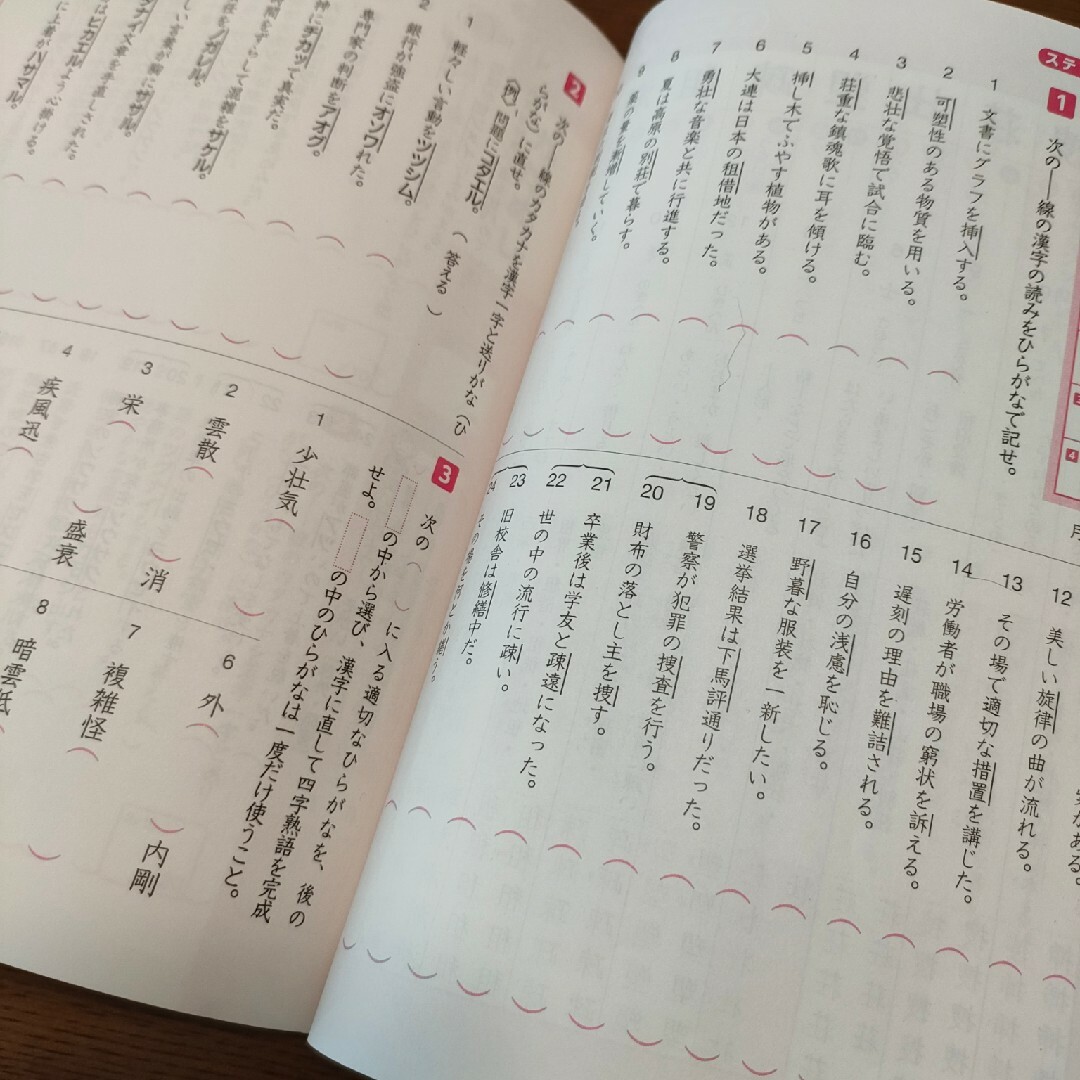 ステ
1 次の──線の漢字の読みをひらがなで記せ。
1 文書にグラフを挿入する。
2 可塑性のある物質を用いる。
3 悲壮な覚悟で試合に臨む。
4 荘重な鎮魂歌に耳を傾ける。
5 挿し木でふやす植物がある。
6 大連は日本の租借地だった。
7 勇壮な音楽と共に行進する。
8 夏は高原の別荘で暮らす。
9 薬の量を漸増していく。
12 美しい旋律の曲が流れる。
13 その場で適切な措置を講じた。
14 労働者が職場の窮状を訴える。
15 遅刻の理由を難詰される。
16 自分の浅慮を恥じる。
17 野暮な服装を一新したい。
18 選挙結果は下馬評通りだった。
19 警察が犯罪の捜査を行う。
20 財布の落とし主を捜す。
21 卒業後は学友と疎遠になった。
22 世の中の流行に疎い。
23 旧校舎は修繕中だ。
24
2 次の──線のカタカナを漢字一字と送りがな(ひ
らがな)に直せ。
〈例〉問題にコタエル。(答える)
1 軽々しい言動をツツシム。
2 銀行が強盗にオソワれた。
専門家の判断をアオグ。
神にチカッて真実だ。
をずらして混雑をサケル。
任をノガレル。
しい言葉が胸にササル。
ナイ文章を手直しされた。
はヒカエルよう心掛ける。
に上着がハサマル。
3 次の( )に入る適切なひらがなを、後の
の中から選び、漢字に直して四字熟語を完成
せよ。 の中のひらがなは一度だけ使うこと。
1 少壮気( )
2 雲散( )消
3 栄( )盛衰
4 疾風迅( )
6 外( )内剛
7 複雑怪( )
8 暗雲低